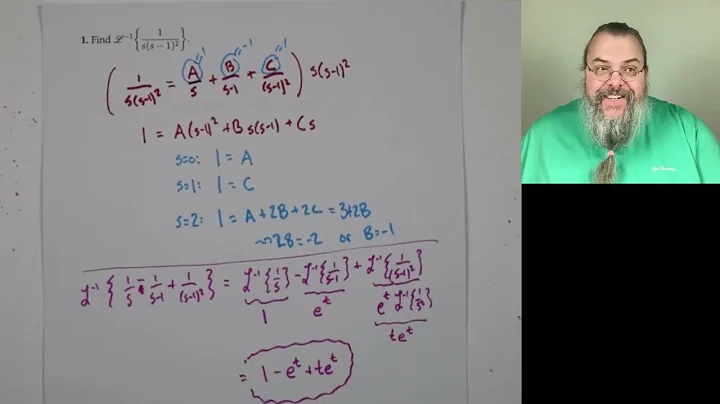 1. Find ℒ⁻¹{1/(s(s − 1)²)}.
(1/(s(s-1)²) = A/s + B/(s-1) + C/(s-1)²) s(s-1)²
"1 "-1 "1
1 = A(s-1)² + B s(s-1) + Cs
s=0: 1 = A
s=1: 1 = C
s=2: 1 = A+2B+2C = 3+2B
~> 2B = -2 or B = -1
ℒ⁻¹{1/s - 1/(s-1) + 1/(s-1)²} = ℒ⁻¹{1/s} - ℒ⁻¹{1/(s-1)} + ℒ⁻¹{1/(s-1)²}
1 eᵗ eᵗ ℒ⁻¹{1/s²}
teᵗ
= 1 - eᵗ + teᵗ